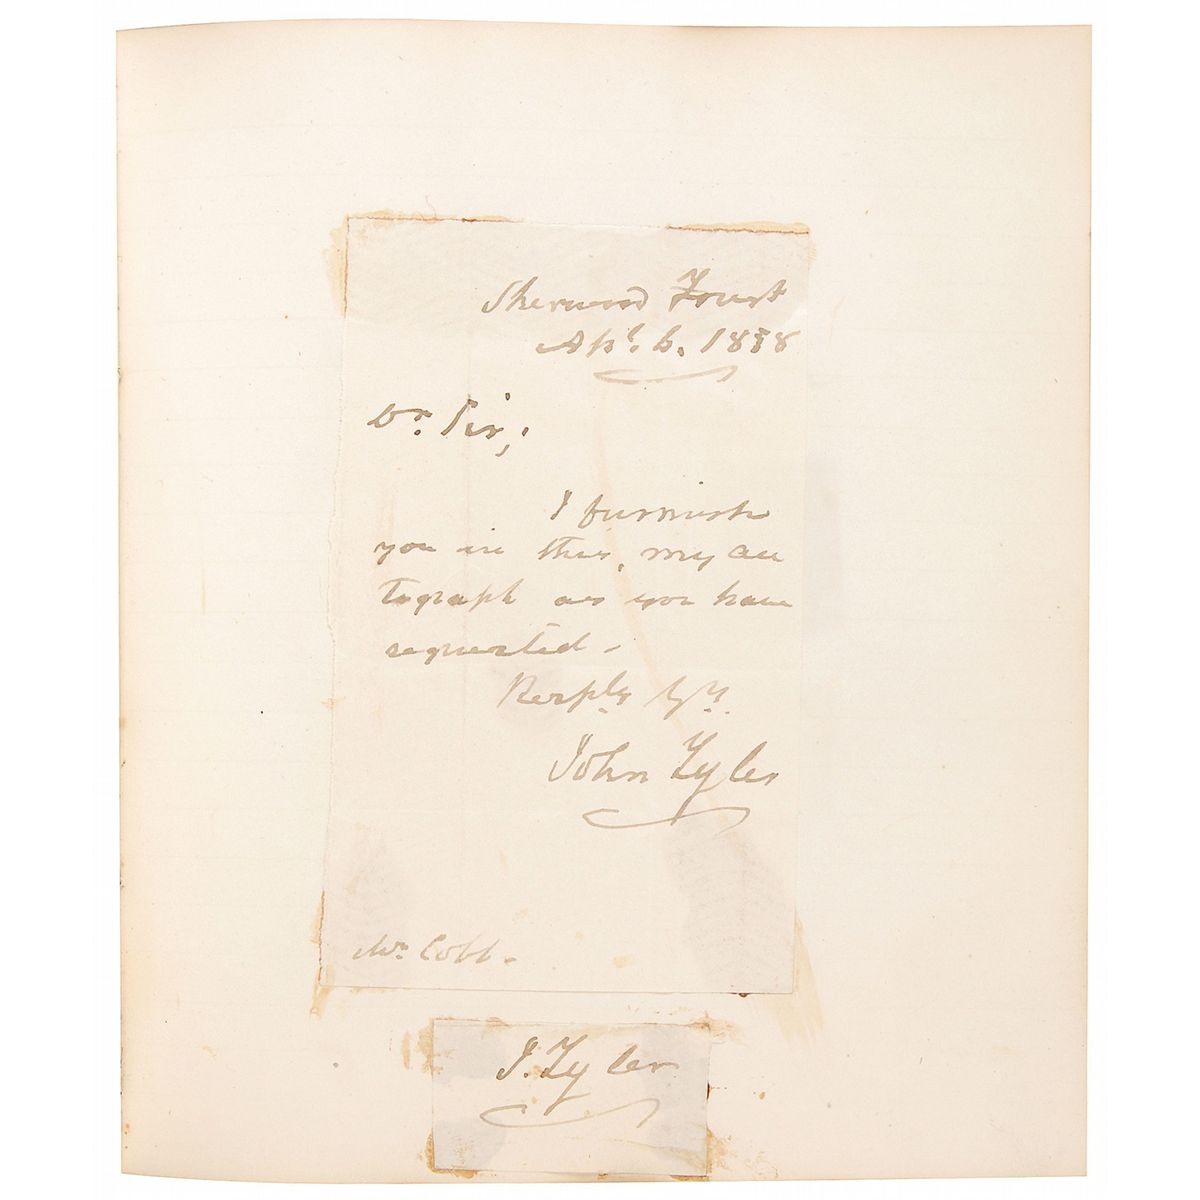 Sherwood Forest
Apl. 6. 1858
Dr. Sir;
I furnish
you in this, my au
tograph as you have
requested -
Resply Yrs.
John Tyler
Mr. Cobb.
J. Tyler